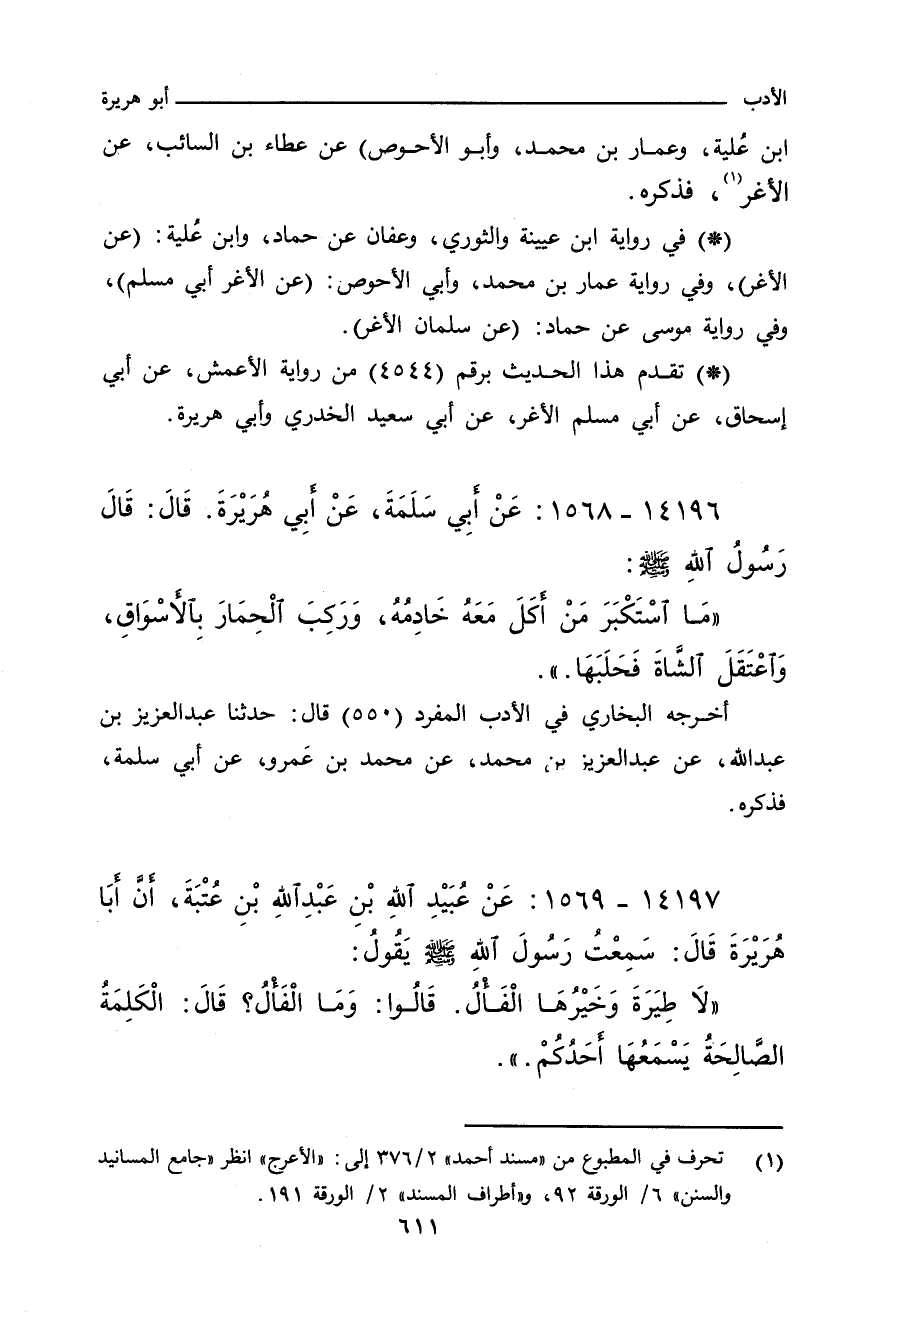 الأدب ــــــــــ أبو هريرة
ابن عُلية، وعمـار بن محمـد، وأبـو الأحـوص) عن عطاء بن السائب، عن
الأغر(١)، فذكره.
(*) في رواية ابن عيينة والثوري، وعفان عن حماد، وابن عُلية: (عن
الأغر)، وفي رواية عمار بن محمد، وأبي الأحوص: (عن الأغر أبي مسلم)،
وفي رواية موسى عن حماد: (عن سلمان الأغر).
(*) تقـدم هذا الحـديث برقم (٤٥٤٤) من رواية الأعمش، عن أبي
إسحاق، عن أبي مسلم الأغر، عن أبي سعيد الخدري وأبي هريرة.
١٤١٩٦ - ١٥٦٨: عَنْ أَبِي سَلَمَةَ، عَنْ أَبِي هُرَيْرَةَ. قَالَ: قَالَ
رَسُولُ ٱللهِ ﷺ:
«مَـا ٱسْتَكْبَرَ مَنْ أَكَلَ مَعَهُ خَادِمُهُ، وَرَكِبَ ٱلْحِمَارَ بِٱلْأَسْوَاقِ،
وَٱعْتَقَلَ ٱلشَّاةَ فَحَلَبَهَا.».
أخـرجه البخاري في الأدب المفرد (٥٥٠) قال: حدثنا عبدالعزيز بن
عبدالله، عن عبدالعزيز بن محمد، عن محمد بن عَمرو، عن أبي سلمة،
فذكره.
١٤١٩٧ - ١٥٦٩: عَنْ عُبَيْدِ ٱللهِ بْنِ عَبْدِٱللهِ بْنِ عُتْبَةَ، أَنَّ أَبَا
هُرَيْرَةَ قَالَ: سَمِعْتُ رَسُولَ ٱللهِ ﷺ يَقُولُ:
«لَا طِيَرَةَ وَخَيْرُهَـا الْفَـأْلُ. قَالُـوا: وَمَـا الْفَأْلُ؟ قَالَ: الْكَلِمَةُ
الصَّالِحَةُ يَسْمَعُهَا أَحَدُكُمْ.».
(١) تحرف في المطبوع من «مسند أحمد» ٣٧٦/٢ إلى: «الأعرج» انظر «جامع المسانيد
والسنن» ٦/ الورقة ٩٢، و«أطراف المسند» ٢/ الورقة ١٩١.
٦١١